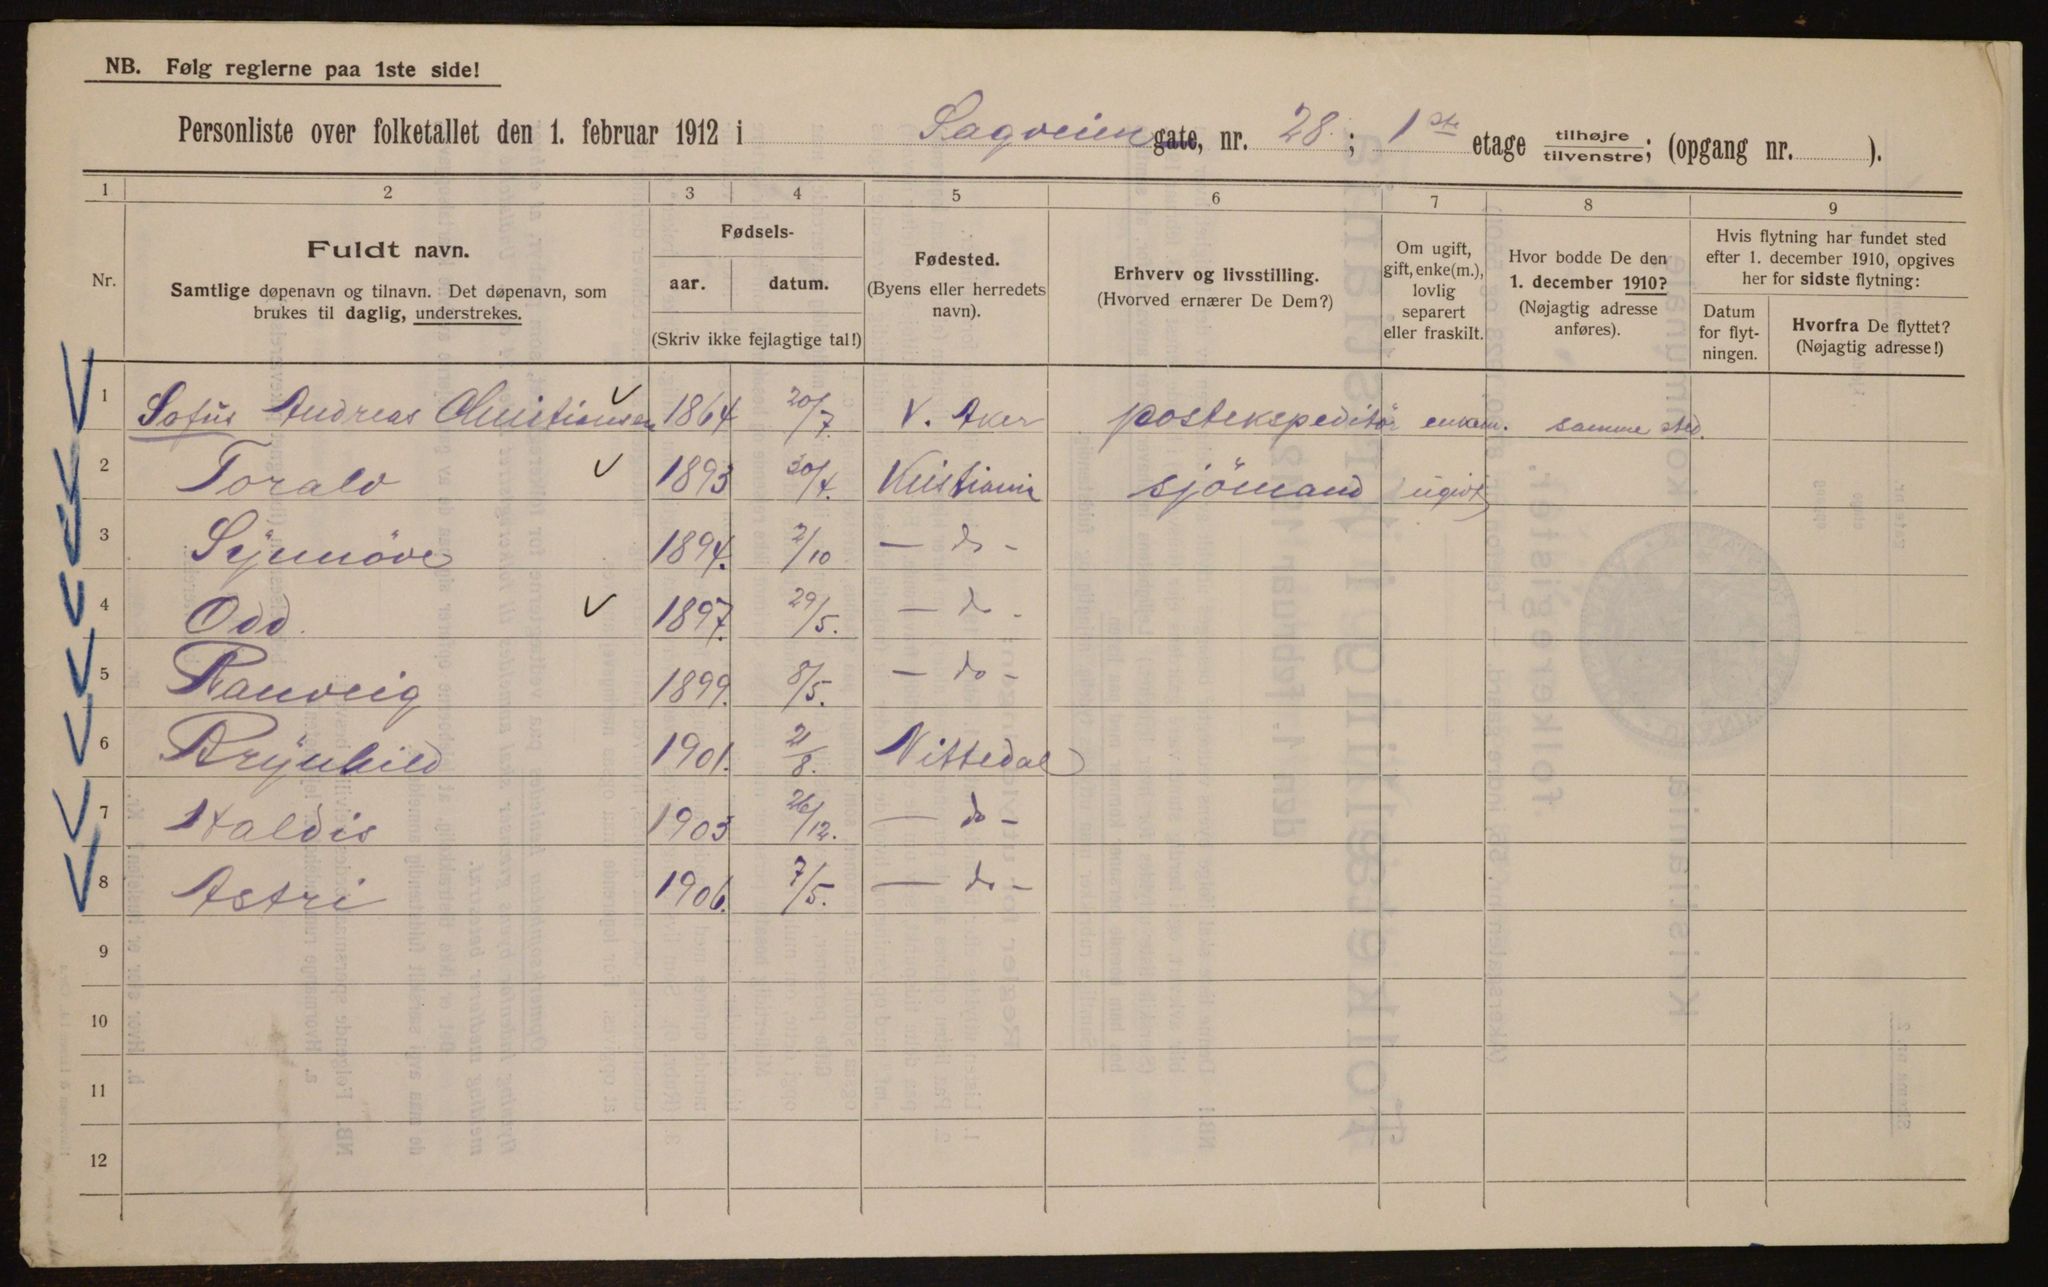 NB. Følg reglerne paa 1ste side!
Personliste over folketallet den 1. februar 1912 i Sagveien gate, nr. 28; 1ste etage tilhøjre tilvenstre; (opgang nr. ).
1 2 3 4 5 6 7 8 9
Nr.
Fuldt navn.
Samtlige døpenavn og tilnavn. Det døpenavn, som
brukes til daglig, understrekes.
Fødsels-
aar. datum.
(Skriv ikke fejlagtige tal!)
Fødested.
(Byens eller herredets
navn).
Erhverv og livsstilling.
(Hvorved ernærer De Dem?)
Om ugift,
gift, enke(m.),
lovlig
separert
eller fraskilt.
Hvor bodde De den
1. december 1910?
(Nøjagtig adresse
anføres).
Hvis flytning har fundet sted
efter 1. december 1910, opgives
her for sidste flytning:
Datum
for flyt-
ningen.
Hvorfra De flyttet?
(Nøjagtig adresse!)
1 Sofus Andreas Christiansen 1864 20/7. V. Aker postekspeditör enkem. samme sted.
2 Toralv 1893 30/4. Kristiania sjömand ugivt
3 Synnöve 1894. 2/10 — do —
4 Odd 1897. 29/5. — do —
5 Ranveig 1899. 8/5. — do —
6 Brynhild 1901. 21/8. Nittedal
7 Haldis 1903 26/12. — do —
8 Astri 1906. 7/5. — do —
9
10
11
12